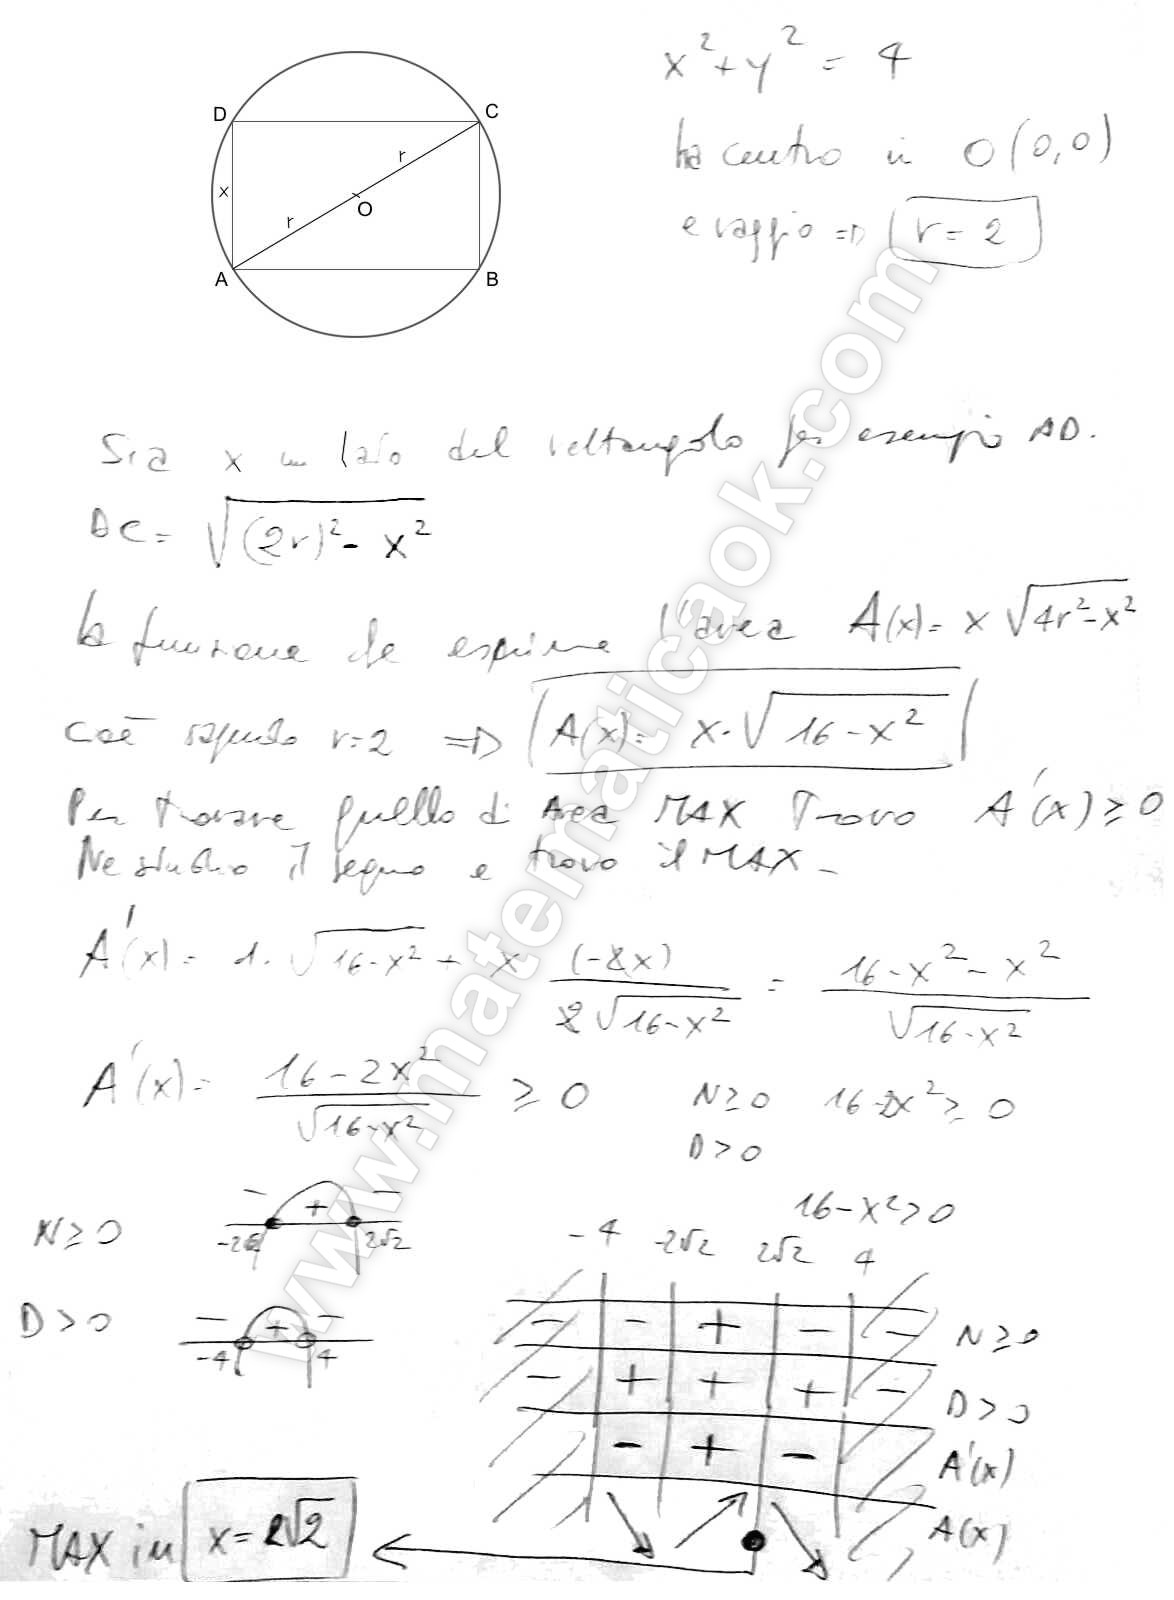 x² + y² = 4
ha centro in O(0,0)
e raggio ⇒ r = 2
D
C
r
x
O
r
A
B
Sia x un lato del rettangolo per esempio AD.
DC = √((2r)² - x²)
la funzione che esprime l'area A(x) = x √(4r² - x²)
cioè sapendo r = 2 ⇒ A(x) = x·√(16 - x²)
Per trovare quello di Area MAX Trovo A'(x) ≥ 0
Ne studio il segno e trovo il MAX -
A'(x) = 1·√(16 - x²) + x (-2x)/(2√(16 - x²)) = (16 - x² - x²)/√(16 - x²)
A'(x) = (16 - 2x²)/√(16 - x²) ≥ 0 N ≥ 0 16 - 2x² ≥ 0
D > 0
16 - x² > 0
N ≥ 0 - + - -2√2 2√2
D > 0 - + - -4 4
-4 -2√2 2√2 4
- - + - - N ≥ 0
- + + + - D > 0
- + - A'(x)
A(x)
MAX in x = 2√2
www.matematicaok.com